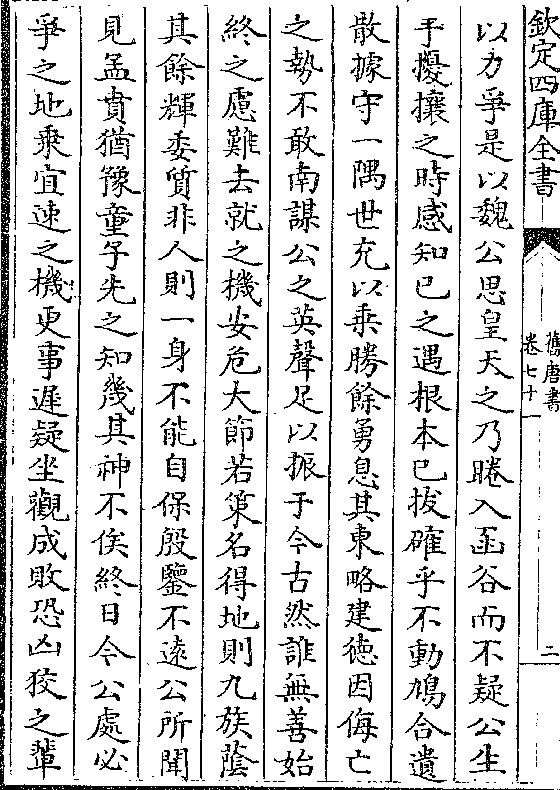 欽定四庫全書
舊唐書
卷七十一
二
以力爭是以魏公思皇天之乃睠入函谷而不疑公生
于擾攘之時感知已之遇根本已拔確乎不動鳩合遺
散據守一隅世充以乗勝餘勇息其東略建徳因侮亡
之勢不敢南謀公之英聲足以振于今古然誰無善始
終之慮難去就之機安危大節若策名得地則九族蔭
其餘輝委質非人則一身不能自保殷鑒不逺公所聞
見孟賁猶豫童子先之知幾其神不俟終日今公處必
爭之地乘宜速之機更事遲疑坐觀成敗恐凶狡之輩